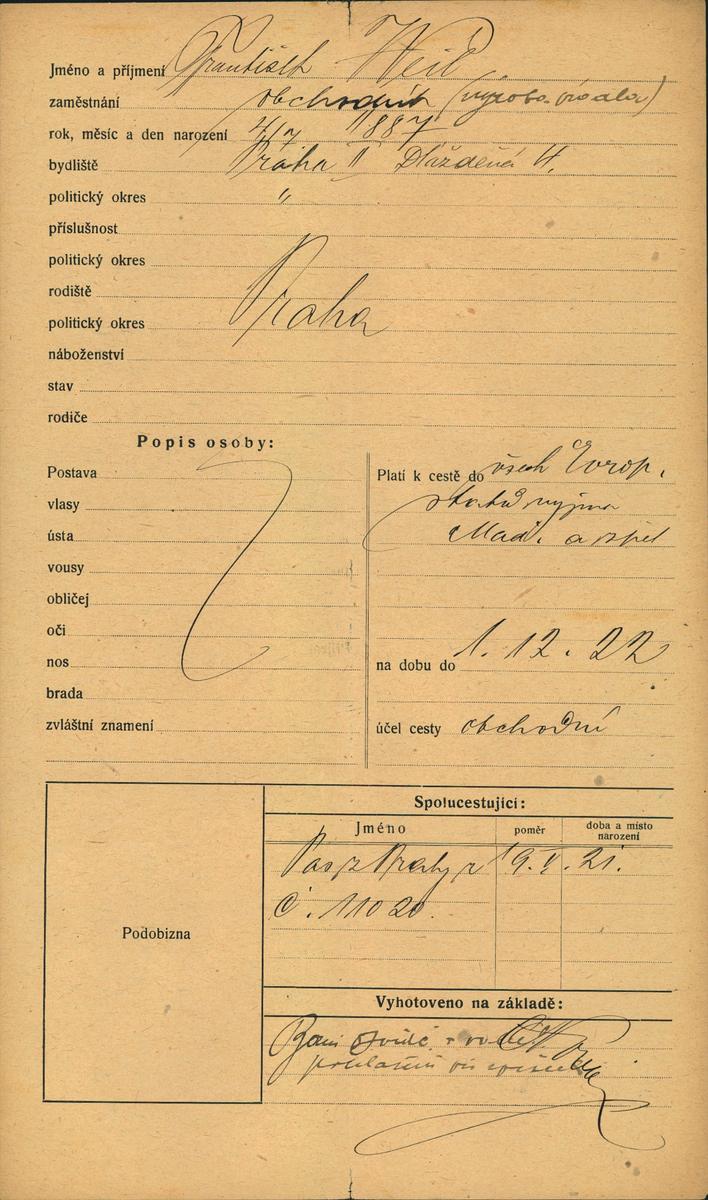 Jméno a příjmení František Weil
zaměstnání obchodník (výroba
rok, měsíc a den narození 4/7 1887
bydliště Praha II Dlážděná 4.
politický okres "
příslušnost
politický okres
rodiště
politický okres Praha
náboženství
stav
rodiče
Popis osoby:
Postava
vlasy
ústa
vousy
obličej
oči
nos
brada
zvláštní znamení
Platí k cestě do všech Evrop.
států vyjma
Maď. a zpět
na dobu do 1. 12. 22
účel cesty obchodní
Podobizna
Spolucestující:
Jméno poměr doba a místo narození
Pas z Prahy z 19. V. 21.
č. 11020.
Vyhotoveno na základě: